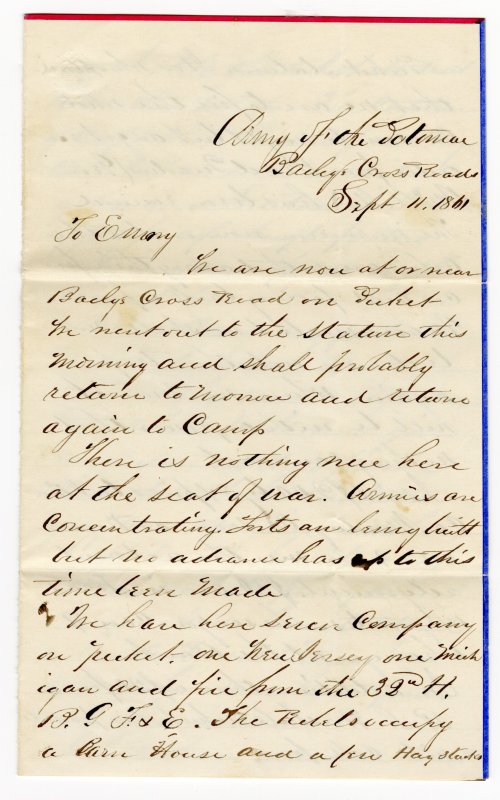 Army of the Potomac
Baileys Cross Roads
Sept 11. 1861
To Emmy
We are now at or near
Bailys Cross Road on Picket
We went out to the Station this
morning and shall probably
return tomorrow and return
again to Camp
There is nothing new here
at the seat of war. Armies are
Concentrating. Forts are being built
but no advance has up to this
time been made
We have here seven Company
on picket. one New Jersey one Mich
igan and five from the
B. G F & E. The Rebels occupy
a Barn House and a few Hay stacks